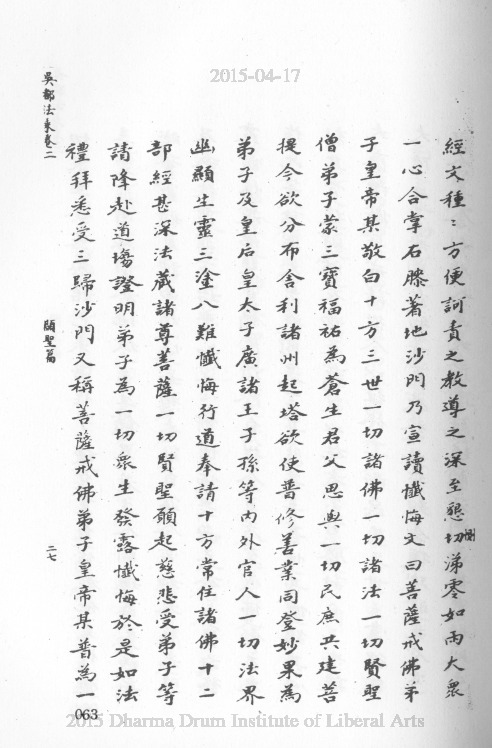 2015-04-17
經文種〻方便訶責之教導之深至懇切涕零如雨大衆
惻
一心合掌右膝著地沙門乃宣讀懺悔文曰菩薩戒佛弟
子皇帝某敬白十方三世一切諸佛一切諸法一切賢聖
僧弟子蒙三寶福祐為蒼生君父思與一切民庶共建菩
提今欲分布舍利諸州起塔欲使普修善業同登妙果為
弟子及皇后皇太子廣諸王子孫等內外官人一切法界
幽顯生靈三塗八難懺悔行道奉請十方常住諸佛十二
部經甚深法藏諸尊菩薩一切賢聖願起慈悲受弟子等
請降赴道場證明弟子為一切衆生發露懺悔於是如法
禮拜悉受三歸沙門又稱菩薩戒佛弟子皇帝某普為一
吳都法乘卷二
顯聖篇
二七
063
2015 Dharma Drum Institute of Liberal Arts